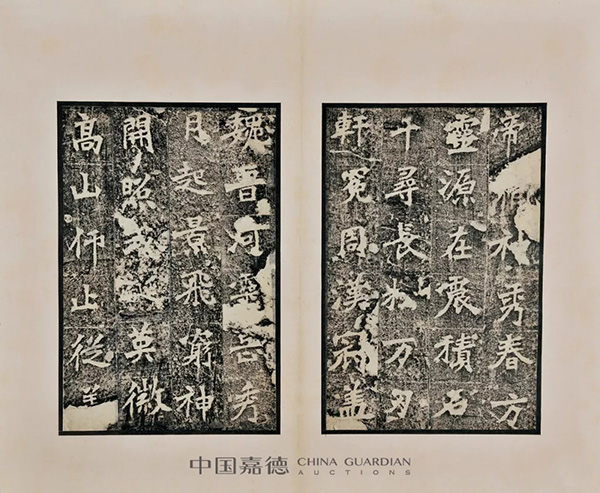 帝秀春方
靈源在震積石
千尋長松万刃
軒冕周漢冠盖
魏晉河靈岳秀
月起景飛窮神
開照英徽
高山仰止從
中国嘉德 CHINA GUARDIAN
AUCTIONS